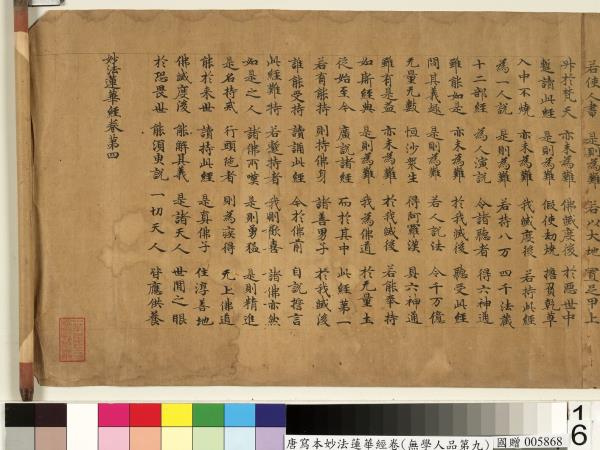 若使人書 是則為難 若以大地 置足甲上
升於梵天 亦未為難 佛滅度後 於惡世中
蹔讀此經 是則為難 假使劫燒 擔負乾草
入中不燒 亦未為難 我滅度後 若持此經
為一人說 是則為難 若持八万 四千法藏
十二部經 為人演說 令諸聽者 得六神通
雖能如是 亦未為難 於我滅後 聽受此經
問其義趣 是則為難 若人說法 令千万億
无量无數 恒沙眾生 得阿羅漢 具六神通
雖有是益 亦未為難 於我滅後 若能奉持
如斯經典 是則為難 我為佛道 於无量土
從始至今 廣說諸經 而於其中 此經第一
若有能持 則持佛身 諸善男子 於我滅後
誰能受持 讀誦此經 今於佛前 自說誓言
此經難持 若蹔持者 我則歡喜 諸佛亦然
如是之人 諸佛所嘆 是則勇猛 是則精進
是名持戒 行頭陁者 則為疾得 无上佛道
能於來世 讀持此經 是真佛子 住淳善地
佛滅度後 能解其義 是諸天人 世間之眼
於恐畏世 能須臾說 一切天人 皆應供養
妙法蓮華經卷第四
唐寫本妙法蓮華經卷(無學人品第九) 國贈 005868
16